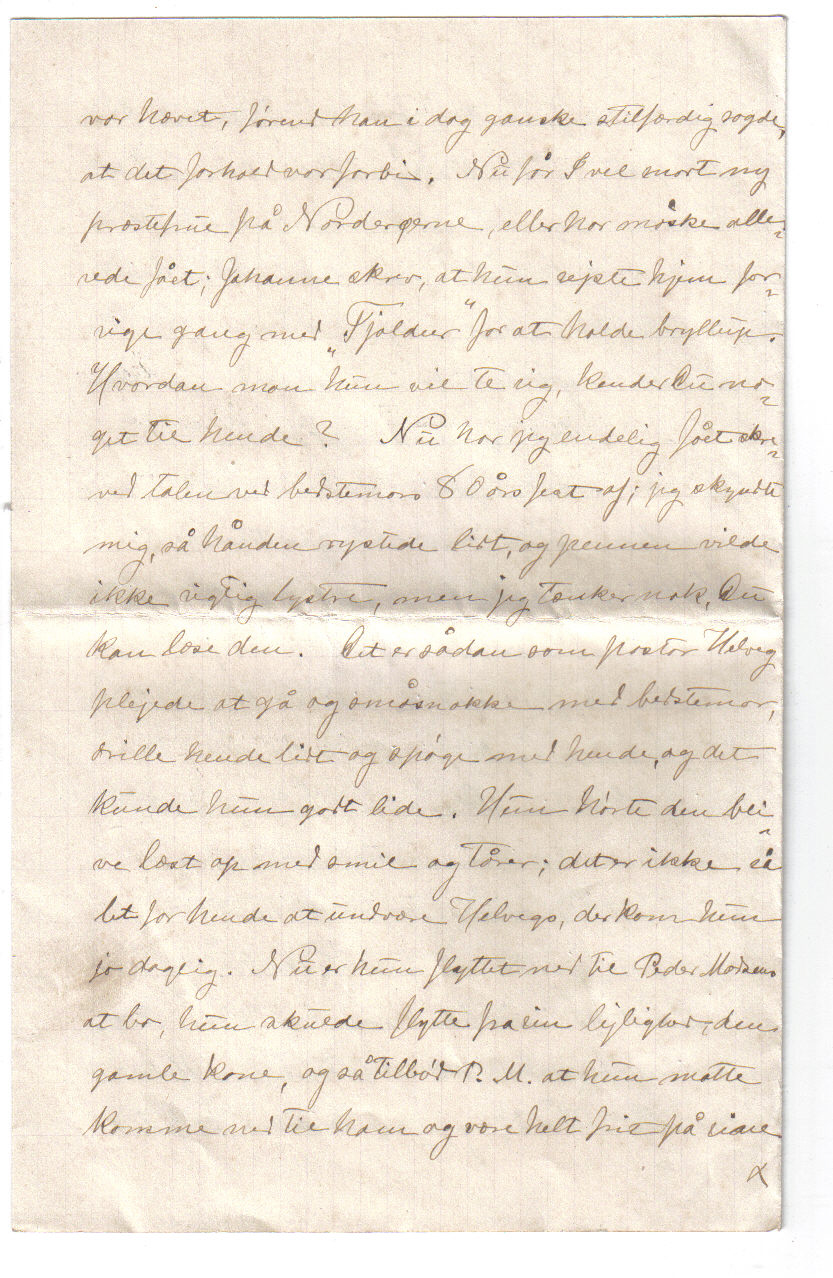 var hævet, førend han i dag ganske stilfærdig sagde,
at det forhold var forbi. Nu får I vel snart ny
præstefrue på Norderøerne, eller har måske alle-
rede fået; Johanne skrev, at hun rejste hjem for-
rige gang med "Tjaldur" for at holde bryllup.
Hvordan mon hun vil te sig, kender Du no-
get til hende? Nu har jeg endelig fået skre-
ved talen ved bedstemors 80 års fest af; jeg skyndte
mig, så hånden rystede lidt, og pennen vilde
ikke rigtig lystre, men jeg tænker nok, Du
kan læse den. Det er sådan som pastor Helveg
plejede at gå og småsnakke med bedstemor,
drille hende lidt og spøge med hende, og det
kunde hun godt lide. Hun hørte den bli-
ve læst op med smil og tårer; det er ikke så
let for hende at undvære Helvegs, der kom hun
jo daglig. Nu er hun flyttet ned til Peder Madsens
at bo, hun skulde flytte fra sin lejlighed, den
gamle kone, og så tilbød P. M. at hun måtte
komme ned til ham og være helt frit på sine